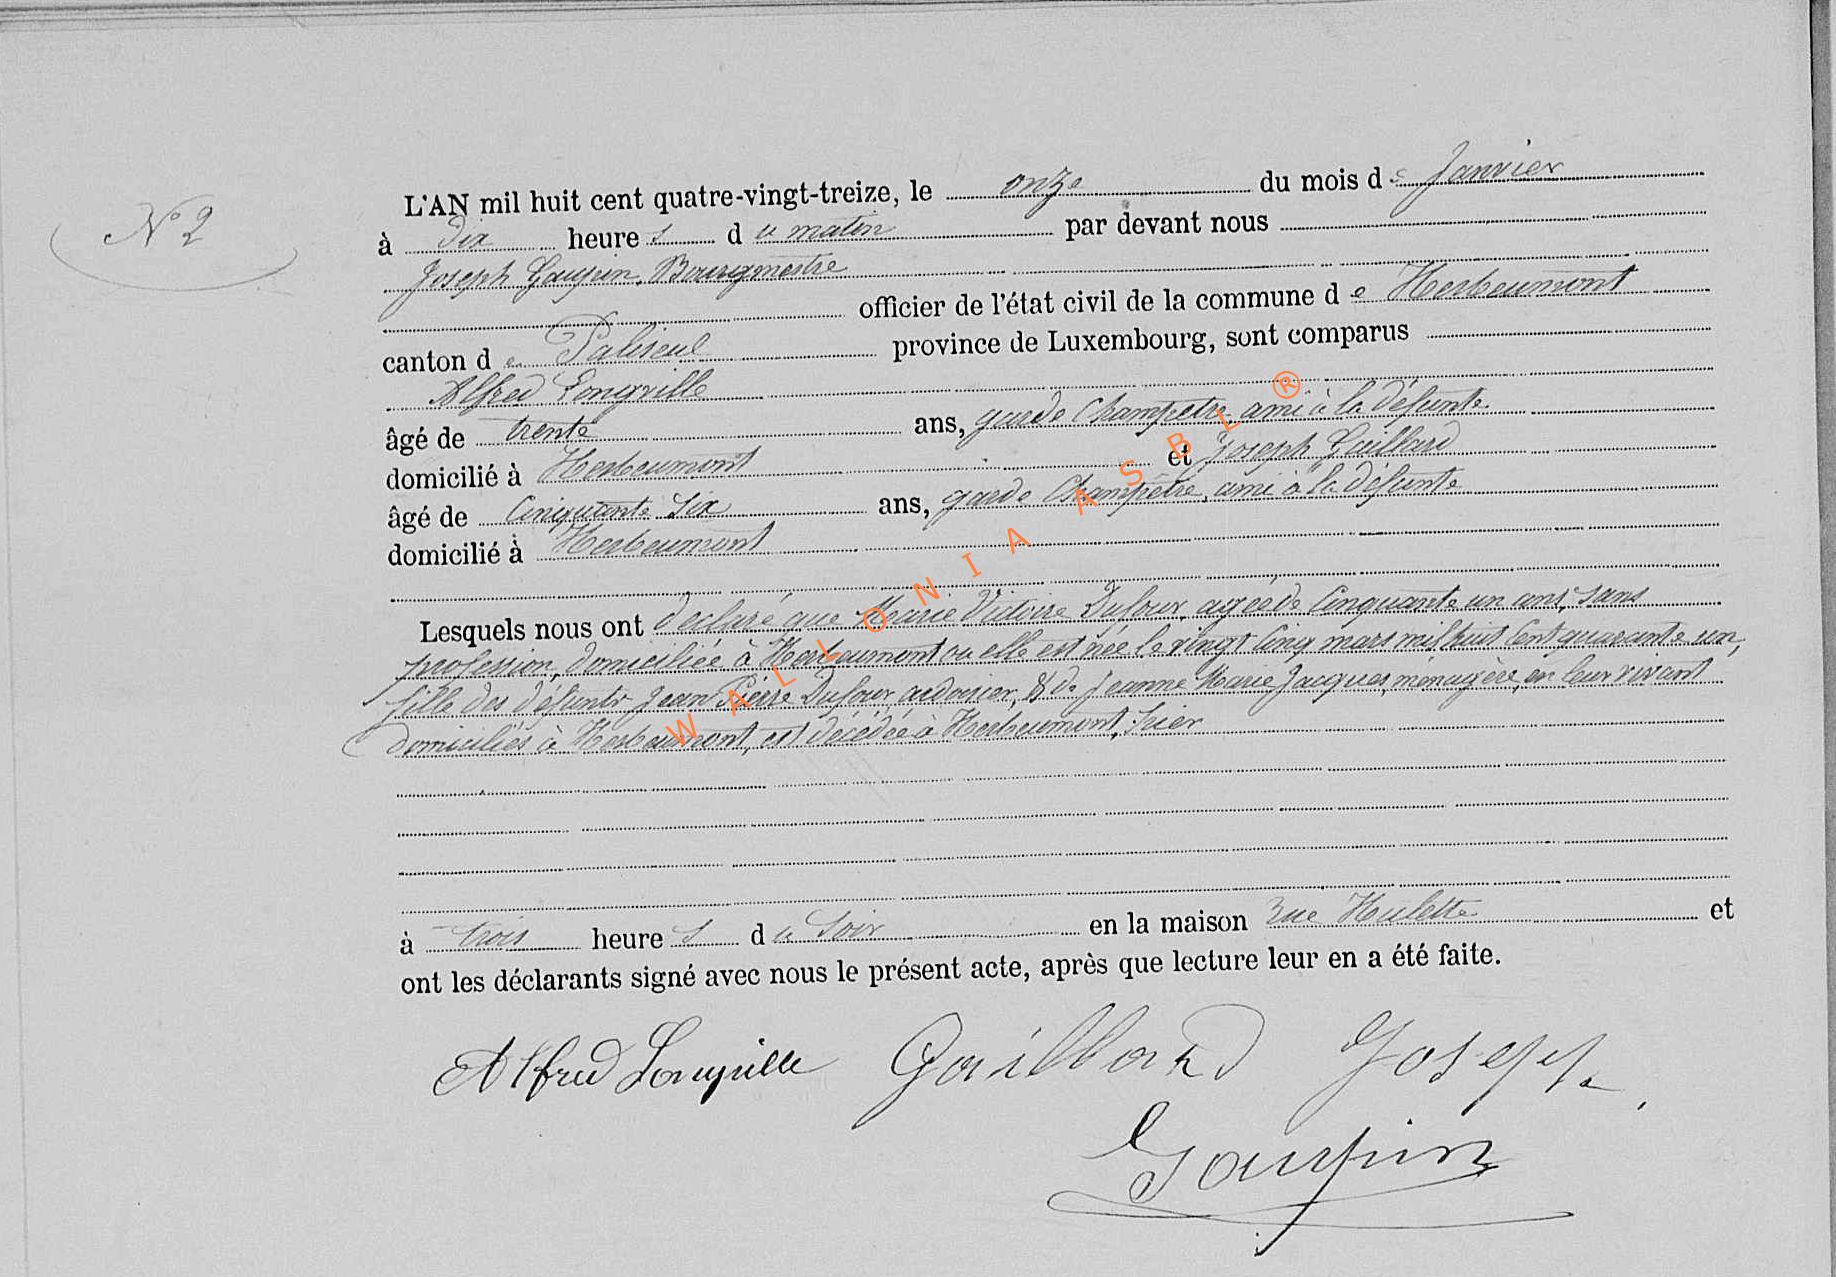 N° 2
L'AN mil huit cent quatre-vingt-treize, le onze du mois de Janvier
à dix heures du matin par devant nous
Joseph Gaupin, Bourgmestre
officier de l'état civil de la commune de Herbeumont
canton de Paliseul province de Luxembourg, sont comparus
Alfred Longville
âgé de trente ans, garde Champetre, ami à la défunte
domicilié à Herbeumont et Joseph Gaillard
âgé de Cinquante Six ans, garde Champêtre, ami à la défunte
domicilié à Herbeumont
Lesquels nous ont déclaré que Marie Victoire Dufour, agée de Cinquante un ans, sans
profession, domiciliée à Herbeumont ou elle est née le vingt Cinq mars mil huit Cent quarante un,
fille des défunts Jean Pierre Dufour, ardoisier, & de Jeanne Marie Jacques, ménagère, en leur vivant
domiciliés à Herbeumont, est décédée à Herbeumont, hier
à trois heures du Soir en la maison rue Hulette et
ont les déclarants signé avec nous le présent acte, après que lecture leur en a été faite.
Alfred Longville Gaillard Joseph
Gaupin
WALLONIA ASBL ®